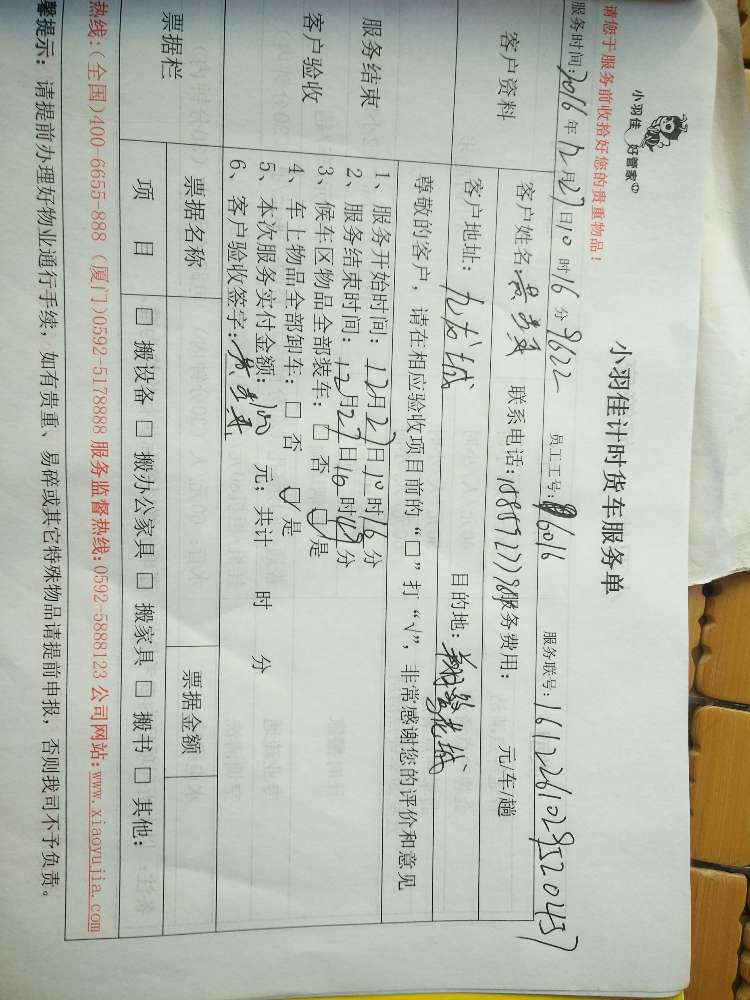 请您于服务前收拾好您的贵重物品！
小羽佳 好管家
小羽佳计时货车服务单
服务时间：2016年12月27日10时16分 9622 员工工号：6016 服务联号：161226102952045
客户资料
客户姓名： 联系电话： 服务费用： 元/车/趟
客户地址：九龙城 目的地：翔鹭花城
尊敬的客户，请在相应验收项目前的“□”打“√”，非常感谢您的评价和意见
服务结束
客户验收
1、服务开始时间：12月27日10时16分
2、服务结束时间：12月27日 时 分
3、候车区物品全部装车：□ 否 ☑ 是
4、车上物品全部卸车：□ 否 ☑ 是
5、本次服务实付金额：200 元；共计 时 分
6、客户验收签字：
票据栏
票据名称 票据金额
项 目 □ 搬设备 □ 搬办公家具 □ 搬家具 □ 搬书 □ 其他：
热线：(全国)400-6655-888 (厦门)0592-5178888 服务监督热线：0592-5888123 公司网站：www.xiaoyujia.com
馨提示：请提前办理好物业通行手续，如有贵重、易碎或其它特殊物品请提前申报，否则我司不予负责。